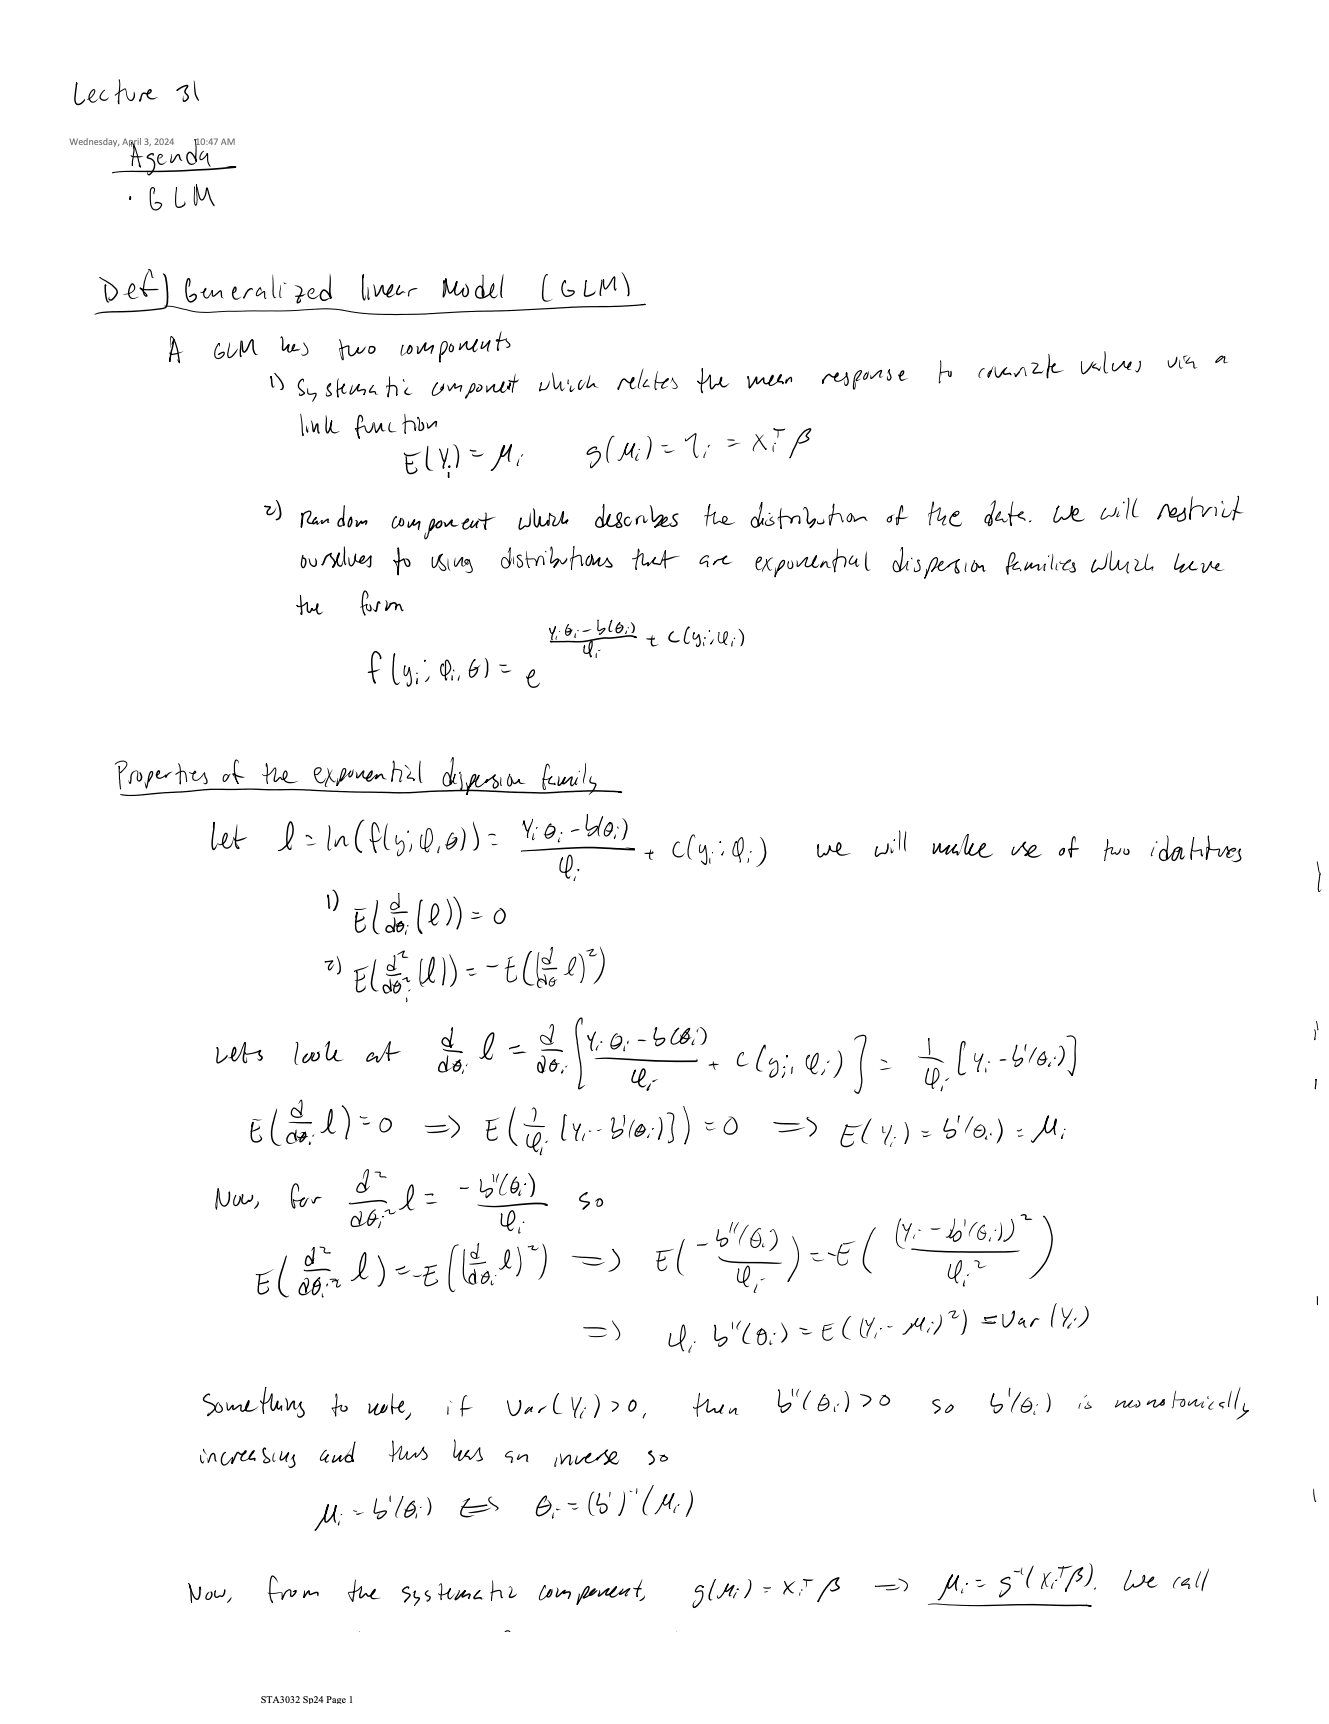 Lecture 31
Wednesday, April 3, 2024 10:47 AM
Agenda
· GLM
Def) Generalized linear Model (GLM)
A GLM has two components
1) Systematic component which relates the mean response to covariate values via a
link function
E(Yᵢ) = μᵢ g(μᵢ) = ηᵢ = xᵢᵀβ
2) Random component which describes the distribution of the data. We will restrict
ourselves to using distributions that are exponential dispersion families which have
the form
f(yᵢ; φᵢ, θ) = e^{(yᵢθᵢ - b(θᵢ))/φᵢ + c(yᵢ; φᵢ)}
Properties of the exponential dispersion family
Let ℓ = ln(f(y; φ, θ)) = (yᵢθᵢ - b(θᵢ))/φᵢ + c(yᵢ; φᵢ) we will make use of two identitives
1) E(d/dθᵢ (ℓ)) = 0
2) E(d²/dθᵢ² (ℓ)) = -E((d/dθ ℓ)²)
Lets look at d/dθᵢ ℓ = d/dθᵢ [(yᵢθᵢ - b(θᵢ))/φᵢ + c(yᵢ; φᵢ)] = 1/φᵢ [yᵢ - b'(θᵢ)]
E(d/dθᵢ ℓ) = 0 => E(1/φᵢ [yᵢ - b'(θᵢ)]) = 0 => E(yᵢ) = b'(θᵢ) = μᵢ
Now, for d²/dθᵢ² ℓ = -b''(θᵢ)/φᵢ so
E(d²/dθᵢ² ℓ) = -E((d/dθᵢ ℓ)²) => E(-b''(θᵢ)/φᵢ) = -E((yᵢ - b'(θᵢ))²/φᵢ²)
=> φᵢ b''(θᵢ) = E((yᵢ - μᵢ)²) = Var(Yᵢ)
Something to note, if Var(Yᵢ) > 0, then b''(θᵢ) > 0 so b'(θᵢ) is monotonically
increasing and thus has an inverse so
μᵢ = b'(θᵢ) <=> θᵢ = (b')⁻¹(μᵢ)
Now, from the systematic component, g(μᵢ) = xᵢᵀβ => μᵢ = g⁻¹(xᵢᵀβ). We call
STA3032 Sp24 Page 1